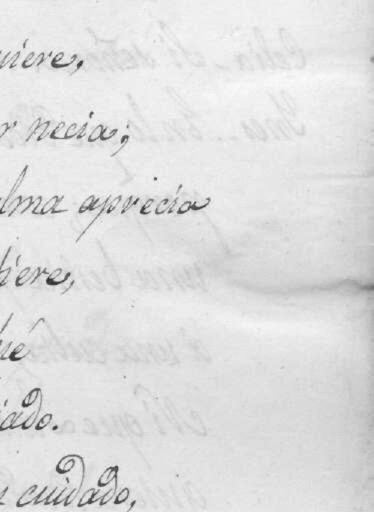 uiere,
r necia;
lma aprecia
iere,
ué
iado.
n cuidado,